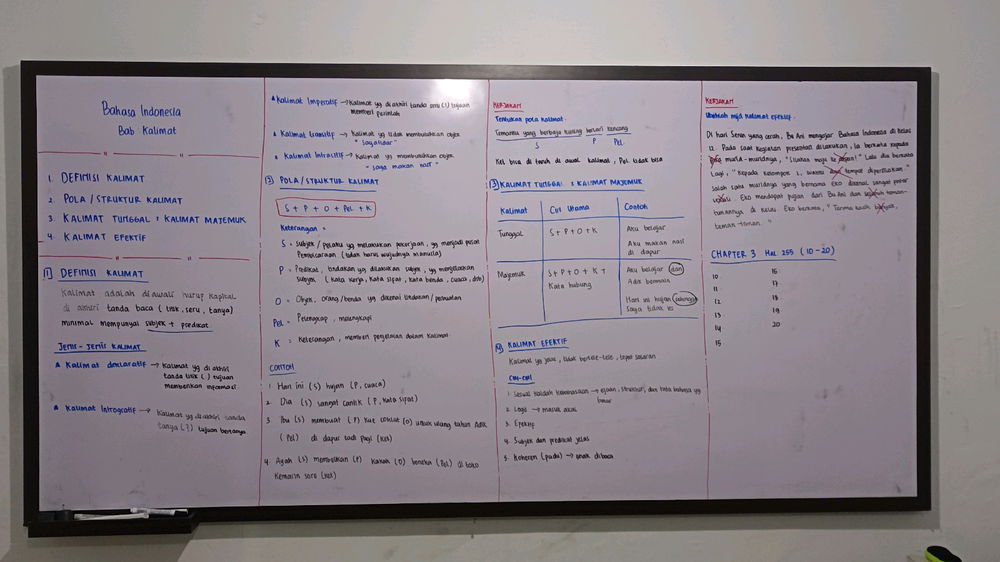 Bahasa Indonesia
Bab Kalimat
1. DEFINISI KALIMAT
2. POLA / STRUKTUR KALIMAT
3. KALIMAT TUNGGAL & KALIMAT MAJEMUK
4. KALIMAT EFEKTIF
1 DEFINISI KALIMAT
Kalimat adalah di awali hurup kapital
di akhiri tanda baca ( titik, seru, tanya)
minimal mempunyai subjek + predikat
Jenis - Jenis KALIMAT
Kalimat deklaratif → Kalimat yg di akhiri
tanda titik (.) tujuan
memberikan informasi
Kalimat Introgatif → Kalimat yg di akhiri tanda
tanya (?) tujuan bertanya
Kalimat Imperatif → Kalimat yg di akhiri tanda seru (!) tujuan
memberi perintah
Kalimat transitif → Kalimat yg tidak membutuhkan objek
" Saya tidur "
Kalimat Intransitif → Kalimat yg membutuhkan objek
" Saya makan nasi "
2 POLA / STRUKTUR KALIMAT
S + P + O + Pel + K
Keterangan =
S = Subjek / pelaku yg melakukan pekerjaan, yg menjadi pusat
Pembicaraan (tidak harus wujudnya manusia)
P = Predikat, tindakan yg dilakukan subjek, yg menjelaskan
Subjek ( kata kerja, kata sifat, kata benda, cuaca, dkk)
O = Objek, orang/benda yg dikenai tindakan / perbuatan
Pel = Pelengkap, melengkapi
K = Keterangan, memberi penjelasan dalam kalimat
CONTOH
1 Hari ini (S) hujan (P, cuaca)
2. Dia (S) sangat cantik (P, kata sifat)
3 Ibu (S) membuat (P) kue coklat (O) untuk ulang tahun Adik
(Pel) di dapur tadi pagi (Ket)
4. Ayah (S) membelikan (P) kakak (O) boneka (Pel) di toko
Kemarin sore (Ket)
KERJAKAN
Tentukan pola kalimat.
Temanku yang berbaju kuning berlari kencang
S P Pel
Kel bisa di taruh di awal kalimat, Pel tidak bisa
3 KALIMAT TUNGGAL & KALIMAT MAJEMUK
Kalimat Ciri Utama Contoh
Tunggal S + P + O + K Aku belajar
Aku makan nasi
di dapur
Majemuk S + P + O + K + Aku belajar dan
Kata hubung Adik bermain
Hari ini hujan sehingga
Saya tidak
4 KALIMAT EFEKTIF
Kalimat yg jelas, tidak bertele-tele, tepat sasaran
Ciri-ciri
1. Sesuai kaidah kebahasaan → ejaan, struktur, dan tata bahasa yg
benar
2. Logis → masuk akal
3. Efektif
4. Subjek dan predikat jelas
5. Koheren (padu) → enak dibaca
KERJAKAN
Ubahlah mjd kalimat efektif.
Di hari Senin yang cerah, Bu Ani mengajar Bahasa Indonesia di Kelas
12. Pada saat kegiatan presentasi dilakukan, ia berkata kepada
murid - muridnya, " Silahkan maju ke depan! " Lalu dia berkata
Lagi, " Kepada Kelompok 1, waktu dan tempat dipersilakan. "
Salah satu muridnya yang bernama Eko dikenal sangat pintar
Eko mendapat pujian dari Bu Ani dan sejumlah teman-
temannya di kelas. Eko berkata, " Terima kasih banyak,
teman - teman. "
CHAPTER 3 Hal 255 (10 - 20)
10 16.
11 17
12 18
13 19
14 20
15.